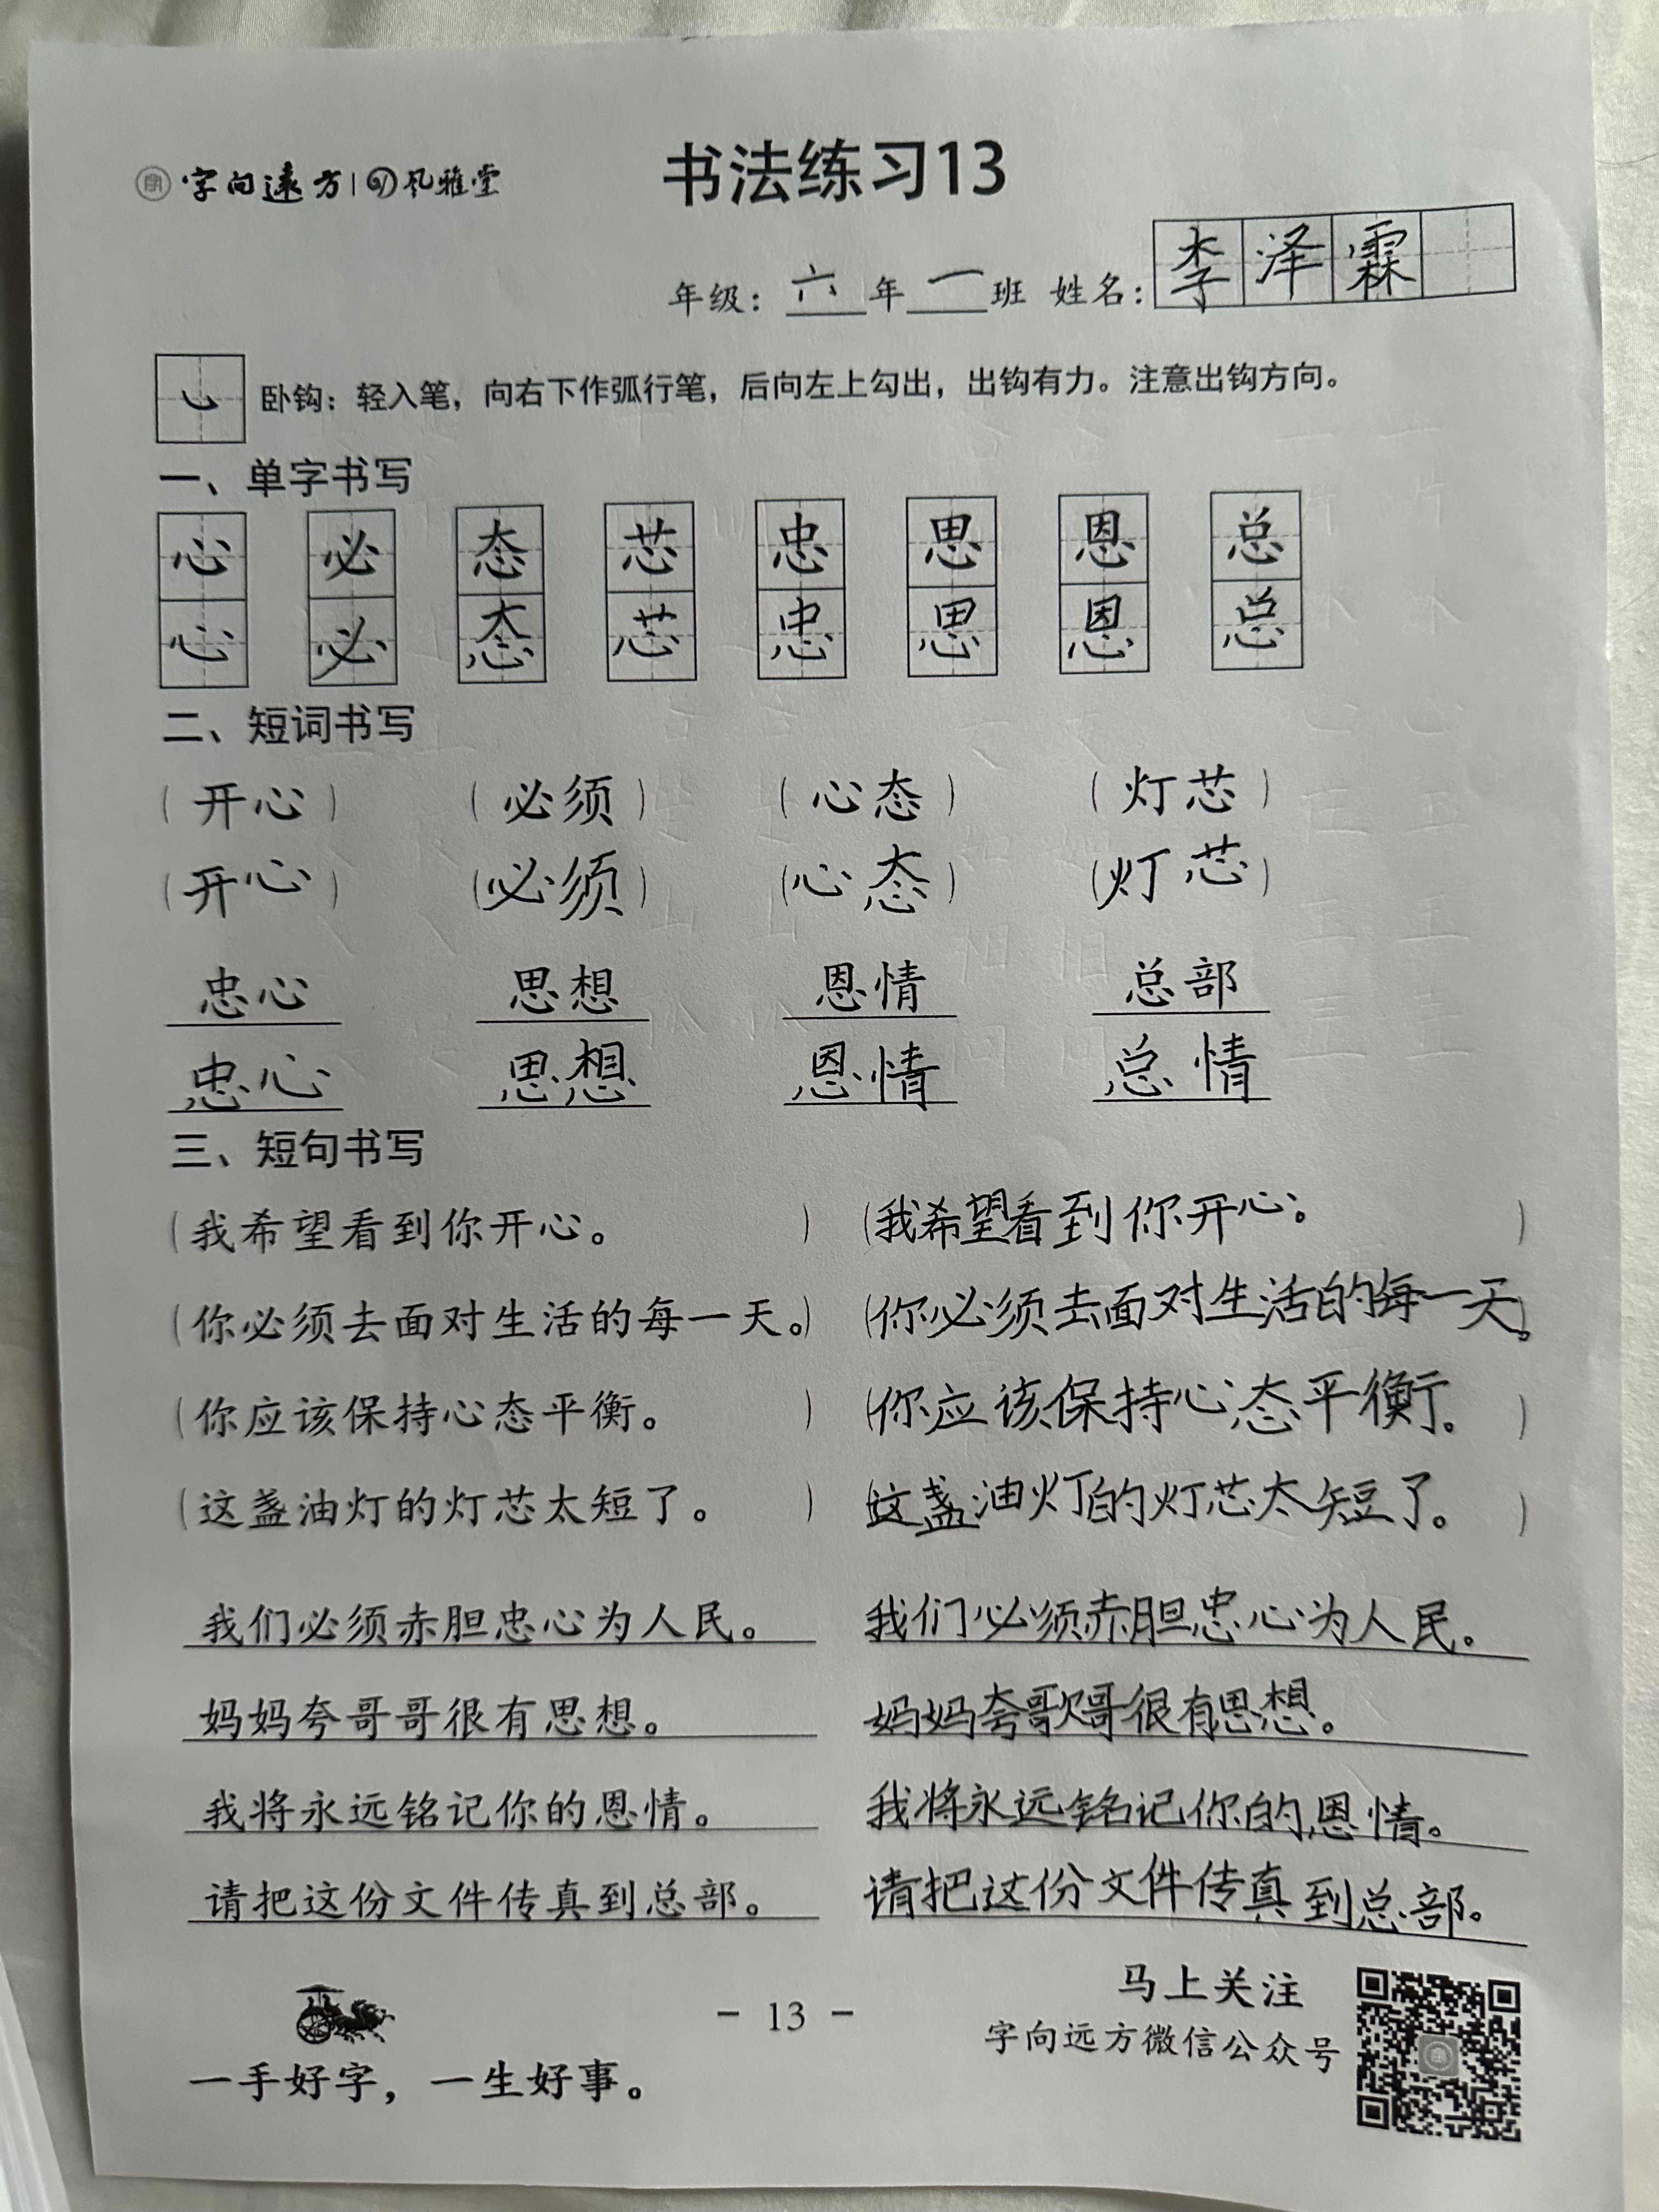 字向远方 风雅堂
书法练习13
年级：六年一班 姓名：李泽霖
卧钩：轻入笔，向右下作弧行笔，后向左上勾出，出钩有力。注意出钩方向。
一、单字书写
心 必 态 芯 忠 思 恩 总
心 必 态 芯 忠 思 恩 总
二、短词书写
（开心） （必须） （心态） （灯芯）
（开心） （必须） （心态） （灯芯）
忠心 思想 恩情 总部
忠心 思想 恩情 总情
三、短句书写
（我希望看到你开心。） （我希望看到你开心。）
（你必须去面对生活的每一天。） （你必须去面对生活的每一天。）
（你应该保持心态平衡。） （你应该保持心态平衡。）
（这盏油灯的灯芯太短了。） （这盏油灯的灯芯太短了。）
我们必须赤胆忠心为人民。 我们必须赤胆忠心为人民。
妈妈夸哥哥很有思想。 妈妈夸歌哥很有思想。
我将永远铭记你的恩情。 我将永远铭记你的恩情。
请把这份文件传真到总部。 请把这份文件传真到总部。
马上关注
－ 13 －
字向远方微信公众号
一手好字，一生好事。